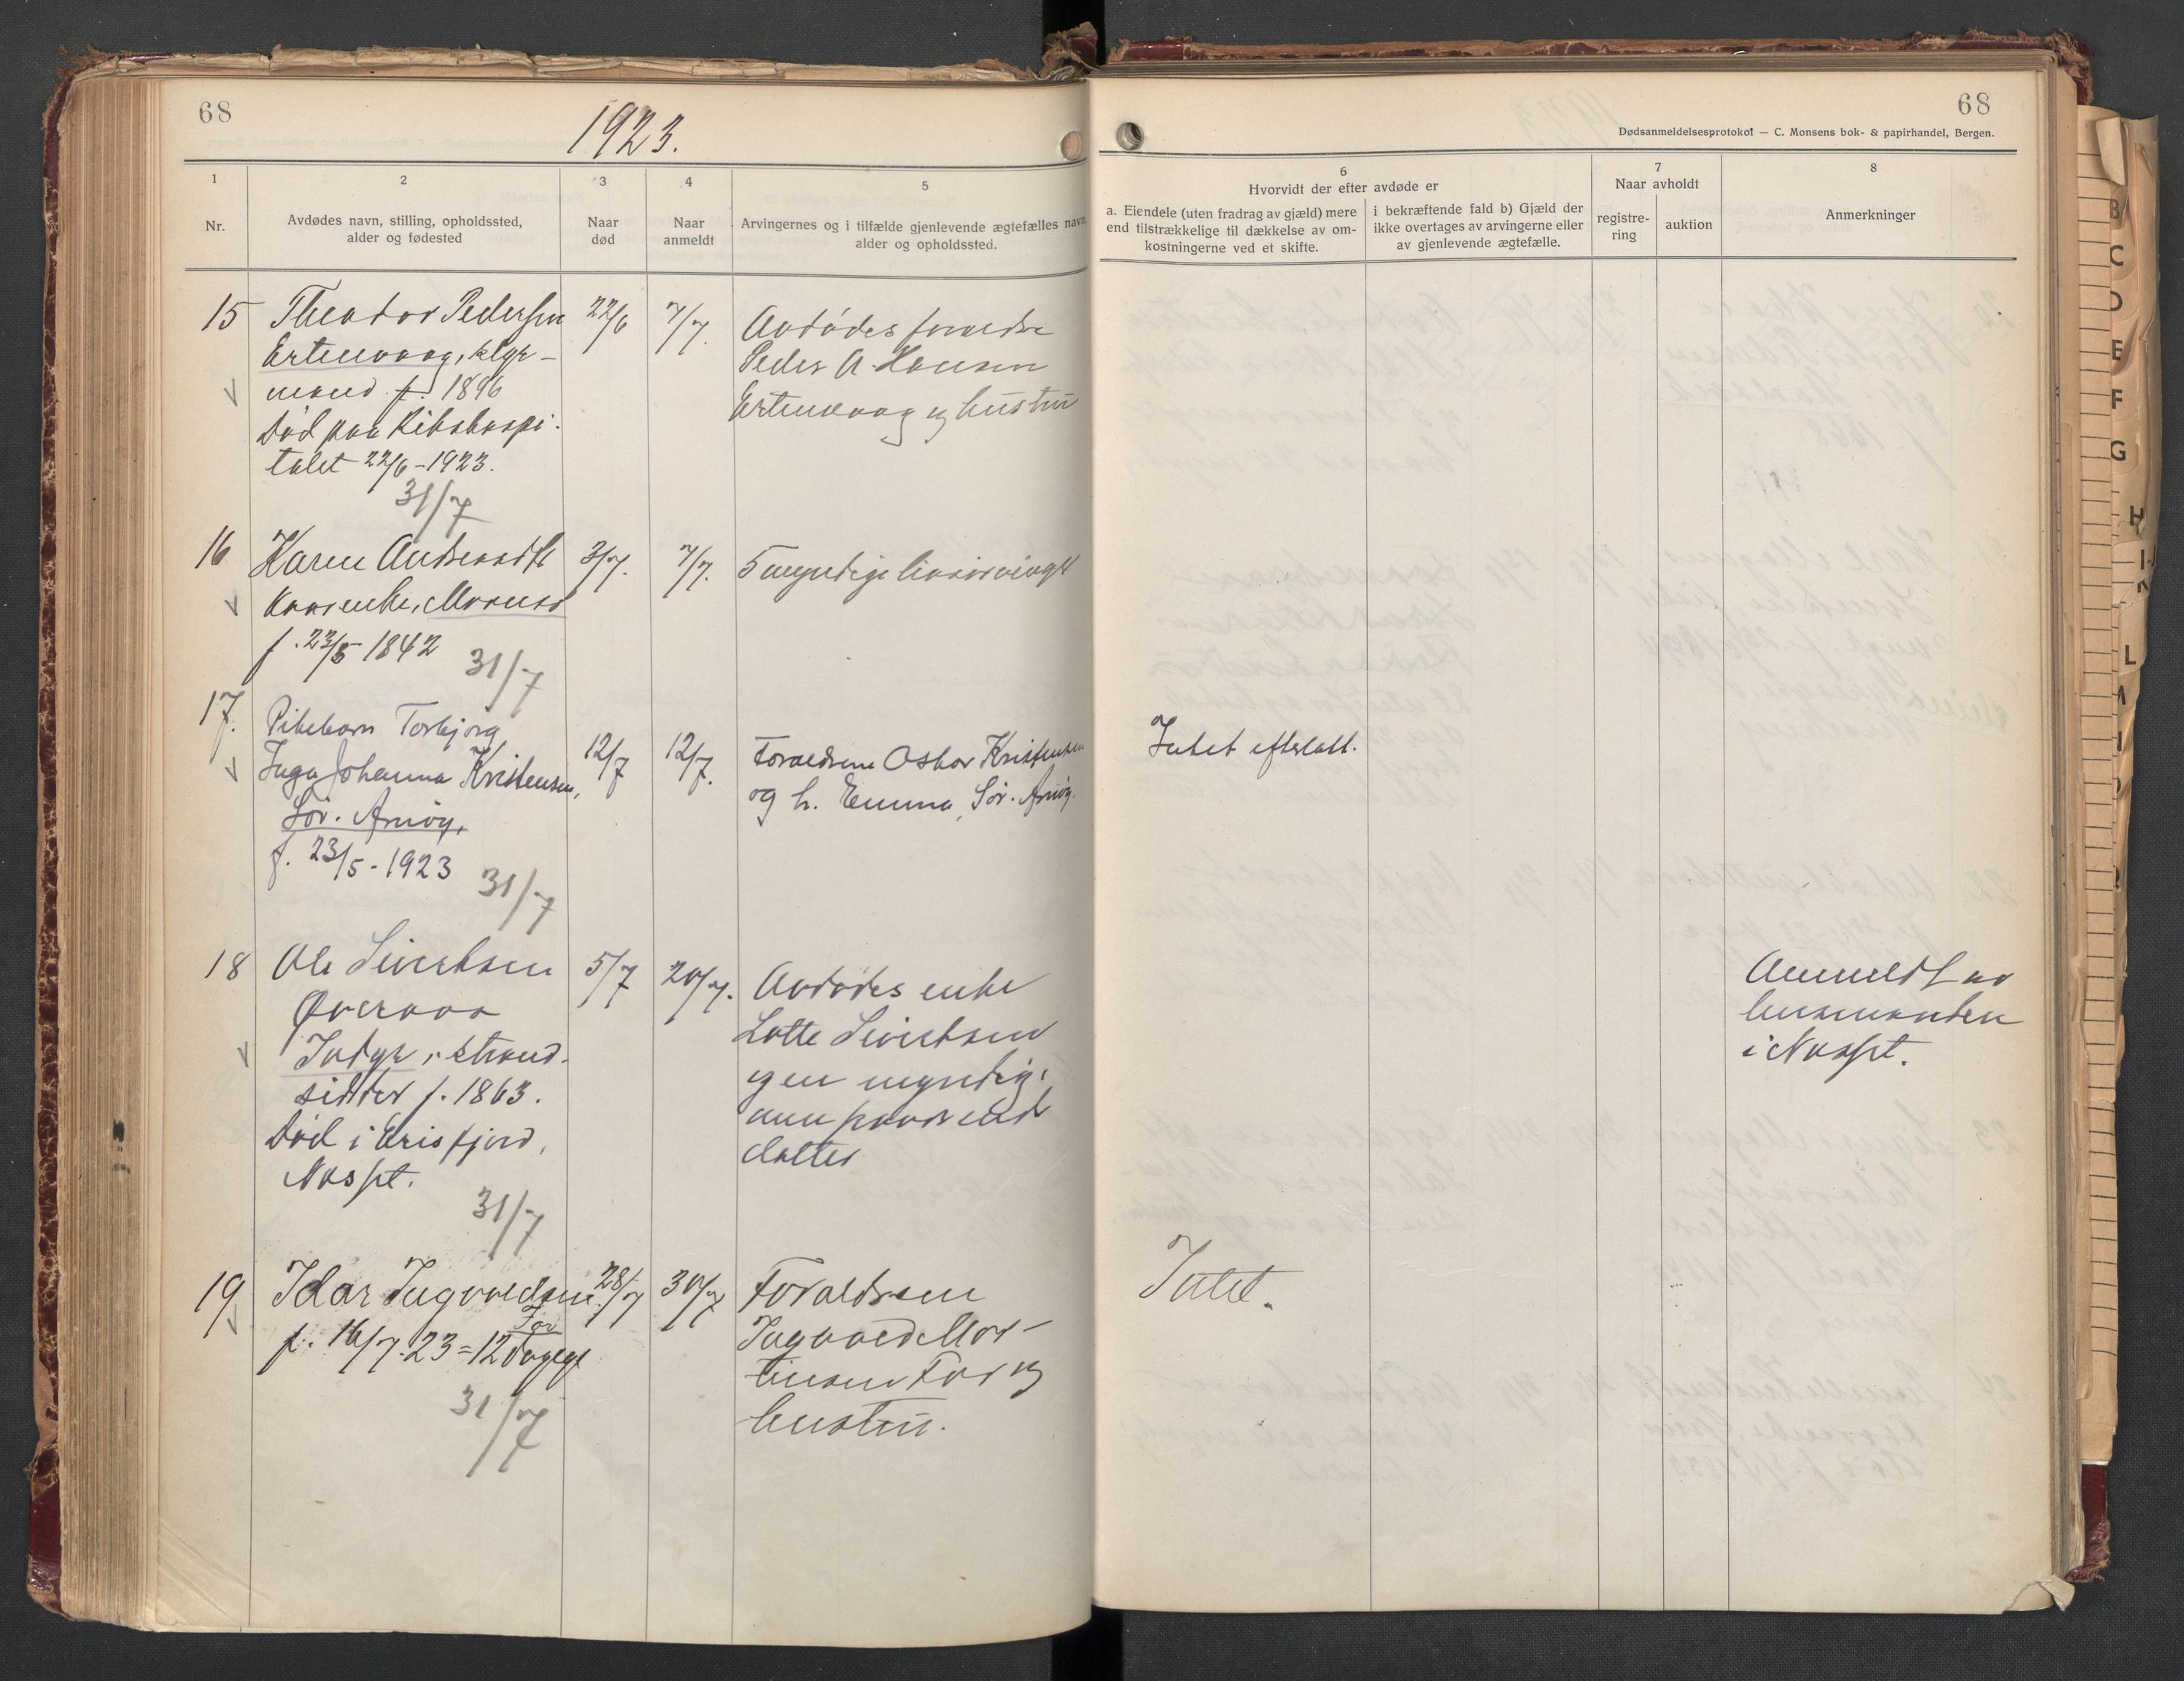 68
1923.
68
Dødsanmeldelsesprotokol — C. Monsens bok- & papirhandel, Bergen.
1
2
3
4
5
6
7
8
Nr.
Avdødes navn, stilling, opholdssted,
alder og fødested
Naar
død
Naar
anmeldt
Arvingernes og i tilfælde gjenlevende ægtefælles navn,
alder og opholdssted.
Hvorvidt der efter avdøde er
a. Eiendele (uten fradrag av gjæld) mere
end tilstrækkelige til dækkelse av om-
kostningerne ved et skifte.
i bekræftende fald b) Gjæld der
ikke overtages av arvingerne eller
av gjenlevende ægtefælle.
Naar avholdt
registre-
ring
auktion
Anmerkninger
15
Theodor Pedersen
Ertenvaag,
mand f. 1896
Død paa Rikshospi-
talet 22/6-1923.
31/7
22/6
7/7.
Avdødes forældre
Peder A. Hansen
Ertenvaag og hustru
16
Karen Andersdtr
kaarenke,
f. 23/5 1842
31/7
3/7.
7/7.
5 myndige livsarvinger
17.
Pikebarn Torbjørg
Inga Johanna Kristensen,
Sør. Arnøy,
f. 23/5-1923
31/7
12/7
12/7.
Forældrene Oskar Kristensen
og h. Emma, Sør. Arnøy.
Intet efterlatt.
18
Ole Sivertsen
Øveraas
Indyr, strand-
sidder f. 1863.
Død i Erisfjord,
Næsset.
31/7
5/7
20/7.
Avdødes enke
Lotte Sivertsen
og en myndig,
datter
Anmeldt av
lensmanden
i Næsset.
19
Idar Ingvaldsen
For
f. 16/7.23=12 dage gl
31/7
28/7
30/7
Forældrene
Ingvald Mar-
tinsen For og
hustru.
Intet.
B
C
D
E
F
G
H
I
L